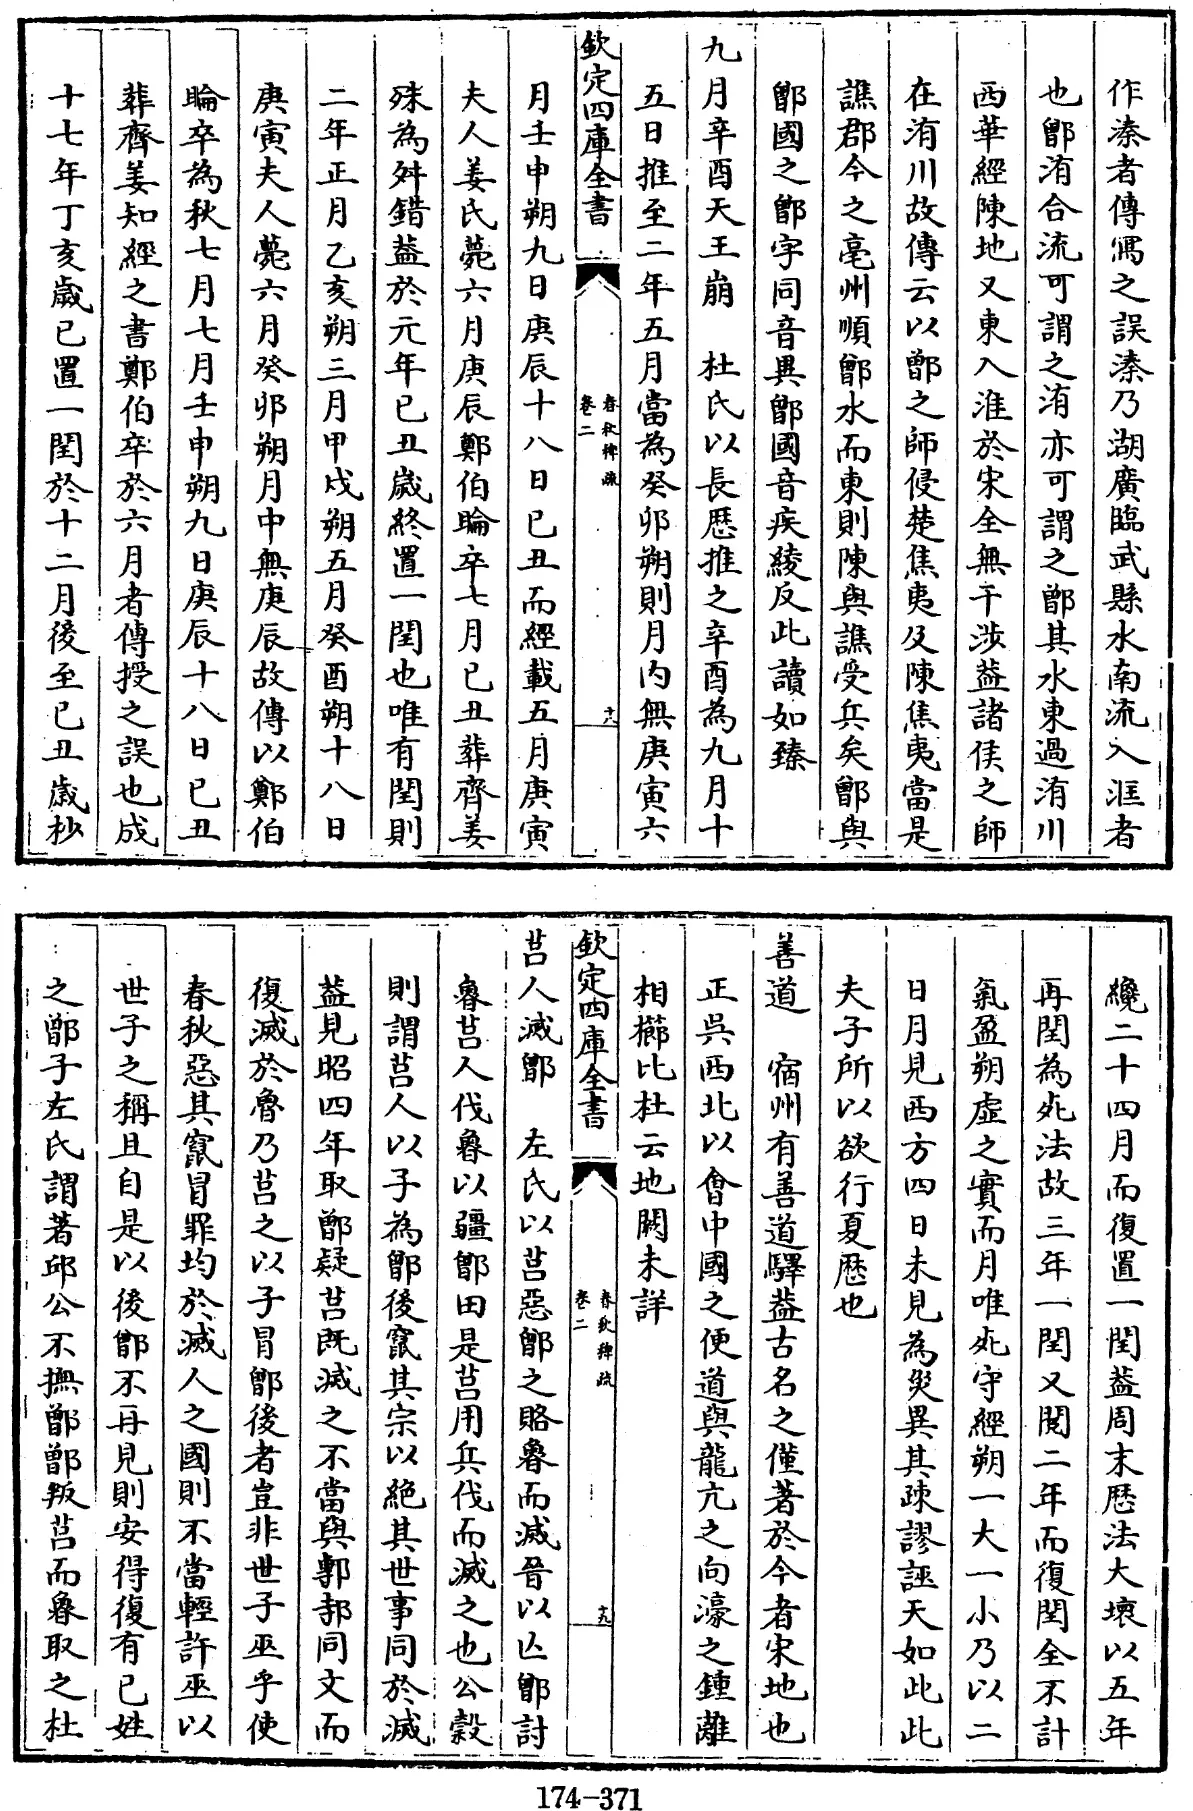 作溱者傳寫之誤溱乃湖廣臨武縣水南流入洭者
也鄫洧合流可謂之洧亦可謂之鄫其水東過洧川
西華經陳地又東入淮於宋全無干涉葢諸侯之師
在洧川故傳云以鄫之師侵楚焦夷及陳焦夷當是
譙郡今之亳州順鄫水而東則陳與譙受兵矣鄫與
鄫國之鄫字同音異鄫國音疾綾反此讀如臻
九月辛酉天王崩　杜氏以長厯推之辛酉為九月十
五日推至二年五月當為癸卯朔則月内無庚寅六
欽定四庫全書
春秋稗疏
卷二
十八
月壬申朔九日庚辰十八日已丑而經載五月庚寅
夫人姜氏薨六月庚辰鄭伯睔卒七月已丑葬齊姜
殊為舛錯葢於元年已丑歲終置一閏也唯有閏則
二年正月乙亥朔三月甲戌朔五月癸酉朔十八日
庚寅夫人薨六月癸卯朔月中無庚辰故傳以鄭伯
睔卒為秋七月七月壬申朔九日庚辰十八日已丑
葬齊姜知經之書鄭伯卒於六月者傳授之誤也成
十七年丁亥歲已置一閏於十二月後至已丑歲杪
纔二十四月而復置一閏葢周末厯法大壞以五年
再閏為死法故三年一閏又閱二年而復閏全不計
氣盈朔虛之實而月唯死守經朔一大一小乃以二
日月見西方四日未見為災異其疎謬誣天如此此
夫子所以欲行夏厯也
善道　宿州有善道驛葢古名之僅著於今者宋地也
正吳西北以會中國之便道與龍亢之向濠之鍾離
相櫛比杜云地闕未詳
欽定四庫全書
春秋稗疏
卷二
十九
莒人滅鄫　左氏以莒惡鄫之賂魯而滅晉以亡鄫討
魯莒人伐魯以疆鄫田是莒用兵伐而滅之也公榖
則謂莒人以子為鄫後竄其宗以絶其世事同於滅
葢見昭四年取鄫疑莒既滅之不當與鄣邿同文而
復滅於魯乃莒之以子冒鄫後者豈非世子巫乎使
春秋惡其竄冒罪均於滅人之國則不當輕許巫以
世子之稱且自是以後鄫不再見則安得復有已姓
之鄫子左氏謂著邱公不撫鄫鄫叛莒而魯取之杜
174-371